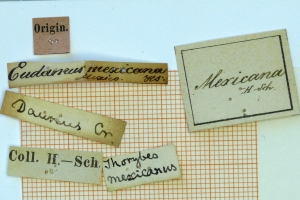 Origin.
Eudamus mexicana
Mexico.
Mexicana
H-Sch.
Daunus Cr.
Coll. H.—Sch.
Thorybes
mexicanus